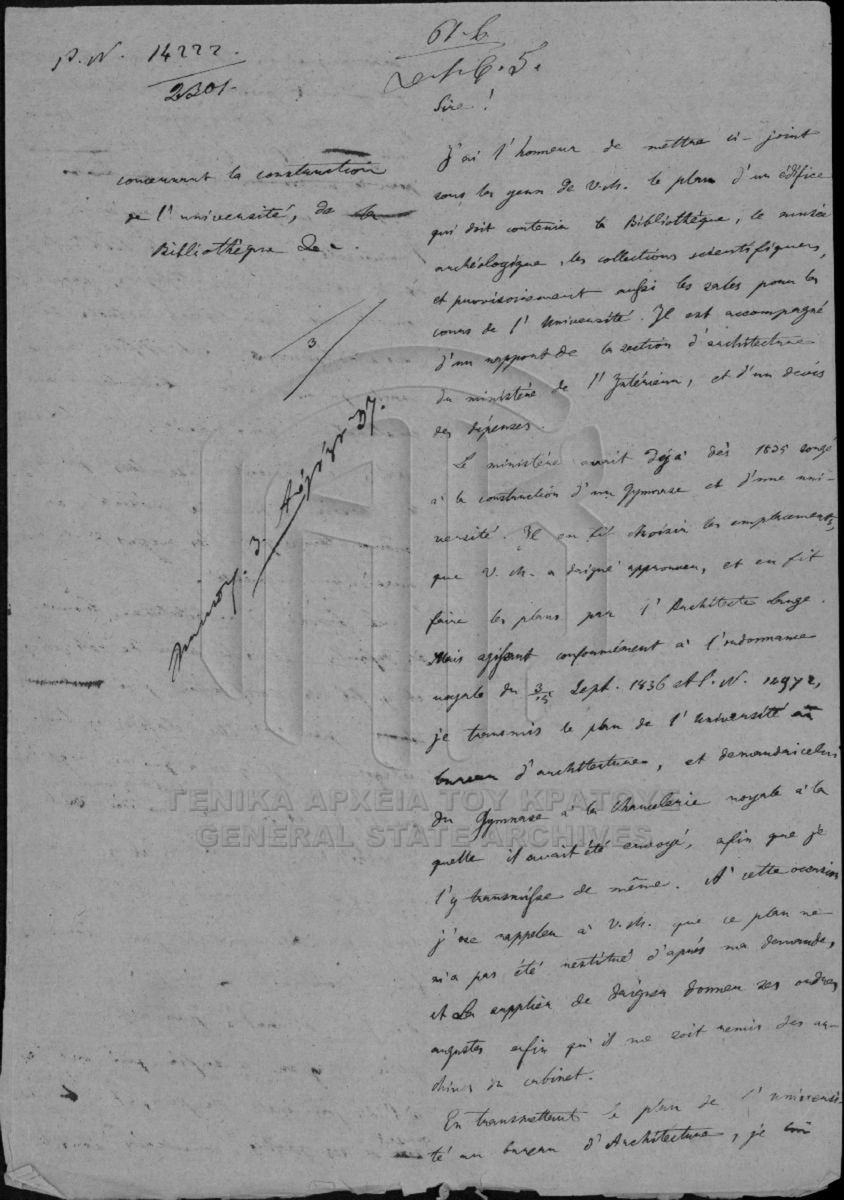 P. N. 14222.
2301.
61. b
Sire!
concernant la construction
de l'université, de la
Bibliothèque &c.
3
3. 37.
J'ai l'honneur de mettre ci-joint
sous les yeux de V. M. le plan d'un édifice
qui doit contenir la Bibliothèque, le musée
archéologique, les collections scientifiques,
et provisoirement aussi les salles pour les
cours de l'Université. Il est accompagné
d'un rapport de la section d'architecture
du ministère de l'Intérieur, et d'un devis
des dépenses.
Le ministère avait déjà dès 1835 songé
à la construction d'un Gymnase et d'une uni-
versité. Il en fit choisir les emplacements,
que V. M. a daigné approuver, et en fit
faire les plans par l'Architecte Lange.
Mais agissant conformément à l'ordonnance
royale du 3/15 Sept. 1836 et P. N. 12972,
je transmis le plan de l'Université au
bureau d'architecture, et demandai celui
du Gymnase à la Chancelerie royale à la
quelle il avait été envoyé, afin que je
l'y transmisse de même. A cette occasion
j'ose rappeler à V. M. que ce plan ne
m'a pas été restitué d'après ma demande,
et La supplier de daigner donner ses ordres
augustes afin qu'il me soit remis des ar-
chives du cabinet.
En transmettant le plan de l'universi-
té au bureau d'Architecture, je
ΓΕΝΙΚΑ ΑΡΧΕΙΑ ΤΟΥ ΚΡΑΤΟΥΣ
GENERAL STATE ARCHIVES